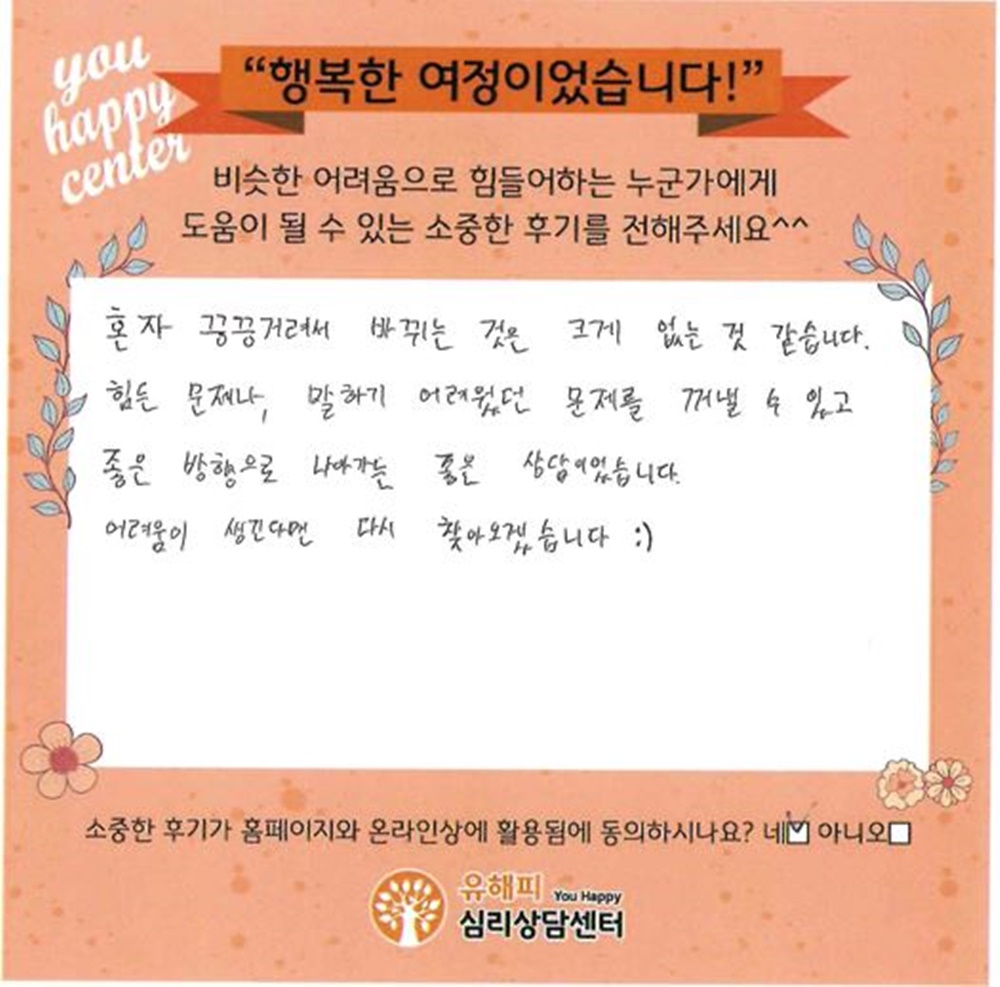 you
happy
center
“행복한 여정이었습니다!”
비슷한 어려움으로 힘들어하는 누군가에게
도움이 될 수 있는 소중한 후기를 전해주세요^^
혼자 끙끙거려서 바뀌는 것은 크게 없는 것 같습니다.
힘든 문제나, 말하기 어려웠던 문제를 꺼낼 수 있고
좋은 방향으로 나아가는 좋은 상담이었습니다.
어려움이 생긴다면 다시 찾아오겠습니다 :)
소중한 후기가 홈페이지와 온라인상에 활용됨에 동의하시나요? 네☑ 아니오☐
유해피 You Happy
심리상담센터